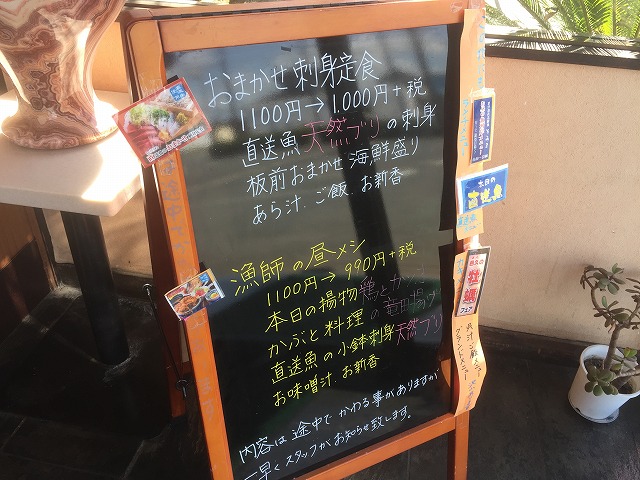 おまかせ刺身定食
1100円→1.000円+税
直送魚 天然ブリの刺身
板前おまかせ海鮮盛り
あら汁.ご飯.お新香
漁師の昼メシ
1100円→990円+税
本日の揚物 鶏と
かぶと料理の竜田揚げ
直送魚の小鉢刺身 天然ブリ
お味噌汁.お新香
内容は途中でかわる事がありますが
一早くスタッフがお知らせ致します。
本日の
直送魚
牡蠣
フェア
グランドメニュー